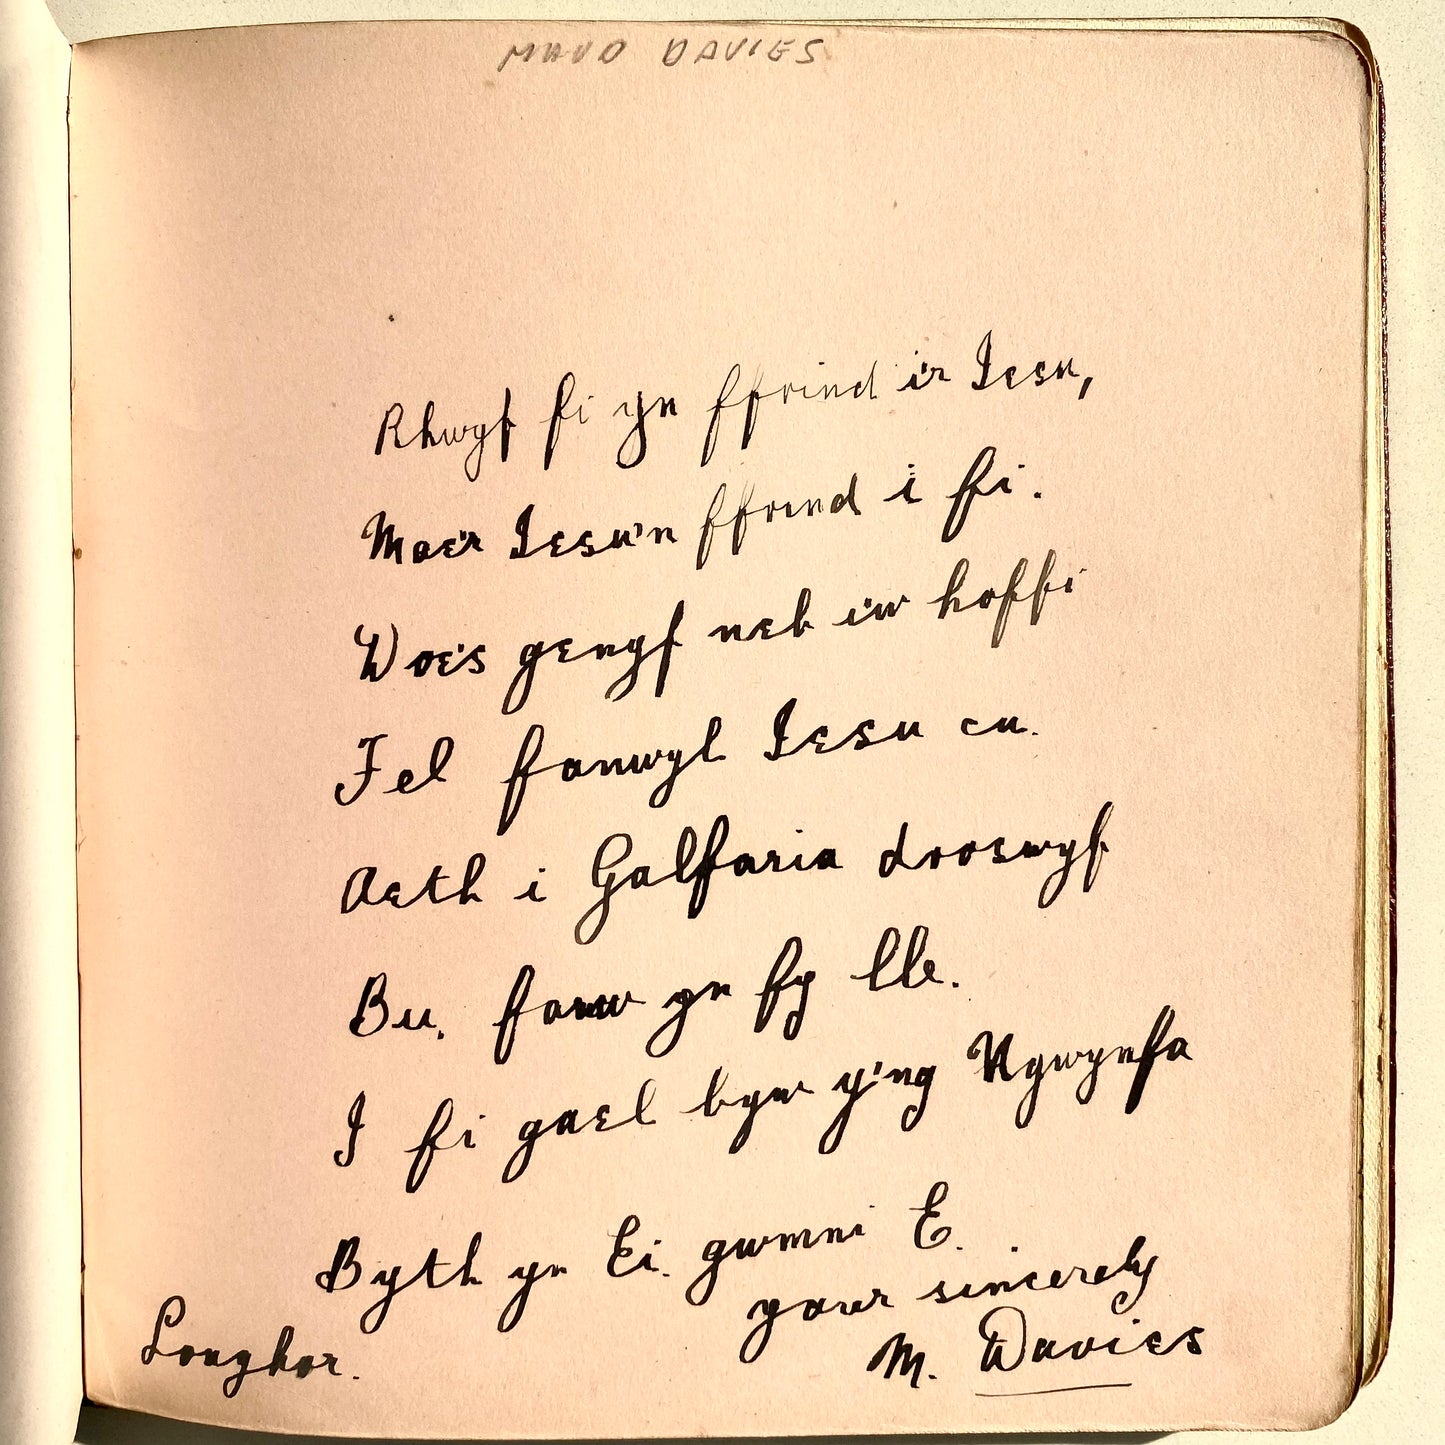 MAUD DAVIES
Rhwyf fi yn ffrind i'r Iesu,
Mae'r Iesu'n ffrind i fi.
Does gennyf neb i'w hoffi
Fel fanwyl Iesu cu.
Aeth i Galfaria drosswyf
Bu, farw yn fy lle.
I fi gael byw y'ng Ngwynfa
Byth yn Ei. gwmni E.
your sincerely
Loughor.
M. Davies